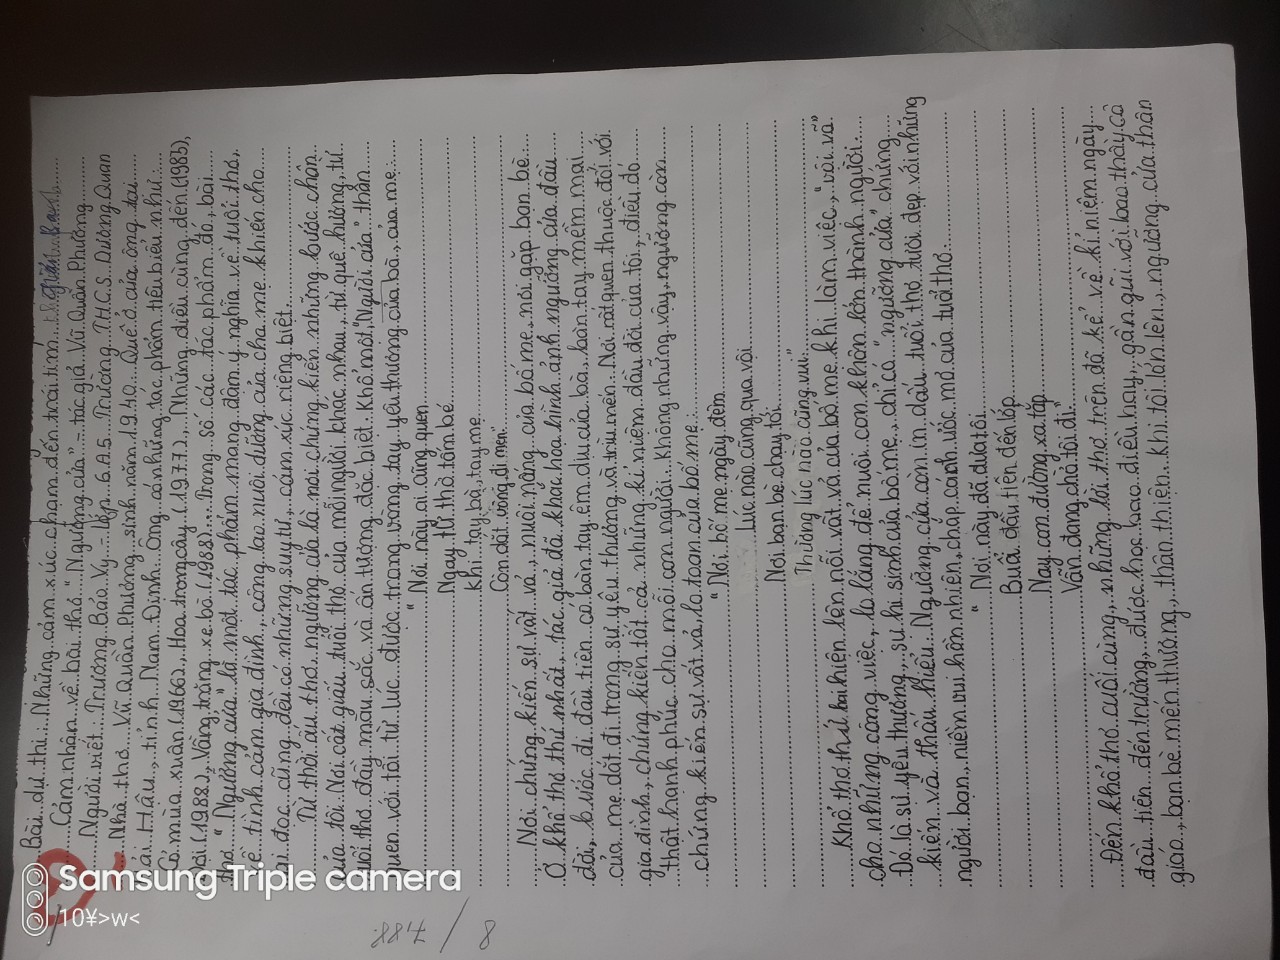 Bài dự thi: Những cảm xúc chạm đến trái tim
Cảm nhận về bài thơ "Ngưỡng cửa" - tác giả Vũ Quần Phương.
Người viết: Trương Bảo Vy - lớp 6A5 Trường THCS Dương Quan
Nhà thơ Vũ Quần Phương sinh năm 1940. Quê ở của ông tại
Hải Hậu, tỉnh Nam Định. Ông có những tác phẩm tiêu biểu như:
Cỏ mùa xuân (1966), Hoa trong cây (1977), Những điều cùng đến (1983),
đợi (1988), Vầng trăng xe bò (1988)... Trong số các tác phẩm đó, bài
thơ "Ngưỡng cửa" là một tác phẩm mang đậm ý nghĩa về tuổi thơ,
về tình cảm gia đình, công lao nuôi dưỡng của cha mẹ khiến cho
ai đọc cũng đều có những suy tư, cảm xúc riêng biệt.
Từ thời ấu thơ, ngưỡng cửa là nơi chứng kiến những bước chân
của tôi. Nơi cất giấu tuổi thơ của mỗi người khác nhau, từ quê hương, từ
tuổi thơ đầy màu sắc và ấn tượng đặc biệt. Khổ một, "Ngưỡi cửa" thân
quen với tôi từ lúc được trong vòng tay yêu thương của bà, của mẹ:
"Nơi này ai cũng quen
Ngay từ thời tấm bé
Khi tay bà, tay mẹ
Còn dắt vòng đi men"
Nơi chứng kiến sự vất vả, nuôi nấng của bố mẹ, nơi gặp bạn bè.
Ở khổ thơ thứ nhất, tác giả đã khắc họa hình ảnh ngưỡng cửa đầu
đời, bước đi đầu tiên có bàn tay êm dịu của bà, bàn tay mềm mại
của mẹ dắt đi trong sự yêu thương và trìu mến. Nơi rất quen thuộc đối với
gia đình, chứng kiến tất cả những kỉ niệm đầu đời của tôi, điều đó
thật hạnh phúc cho mỗi con người. Không những vậy, ngưỡng còn
chứng kiến sự vất vả, lo toan của bố mẹ:
"Nơi bố mẹ ngày đêm
Lúc nào cũng qua vội
Nơi bạn bè chạy tới
Thường lúc nào cũng vui"
Khổ thơ thứ hai hiện lên nỗi vất vả của bố mẹ khi làm việc, "vội vã"
cho những công việc, lo lắng để nuôi con khôn lớn thành người.
Đó là sự yêu thương, sự hi sinh của bố mẹ, chỉ có "ngưỡng cửa" chứng
kiến và thấu hiểu. Ngưỡng cửa còn in dấu tuổi thơ tươi đẹp với những
người bạn, niềm vui hồn nhiên, chắp cánh ước mơ của tuổi thơ.
"Nơi này đã đưa tôi
Buổi đầu tiên đến lớp
Nay con đường xa tắp
Vẫn đang chờ tôi đi"
Đến khổ thơ cuối cùng, những lời thơ trên đã kể về kỉ niệm ngày
đầu tiên đến trường, được học bao điều hay, gần gũi với bao thầy cô
giáo, bạn bè mến thương, thân thiện. Khi tôi lớn lên, ngưỡng cửa thân
8 / 7,88
Samsung Triple camera
10¥>w<